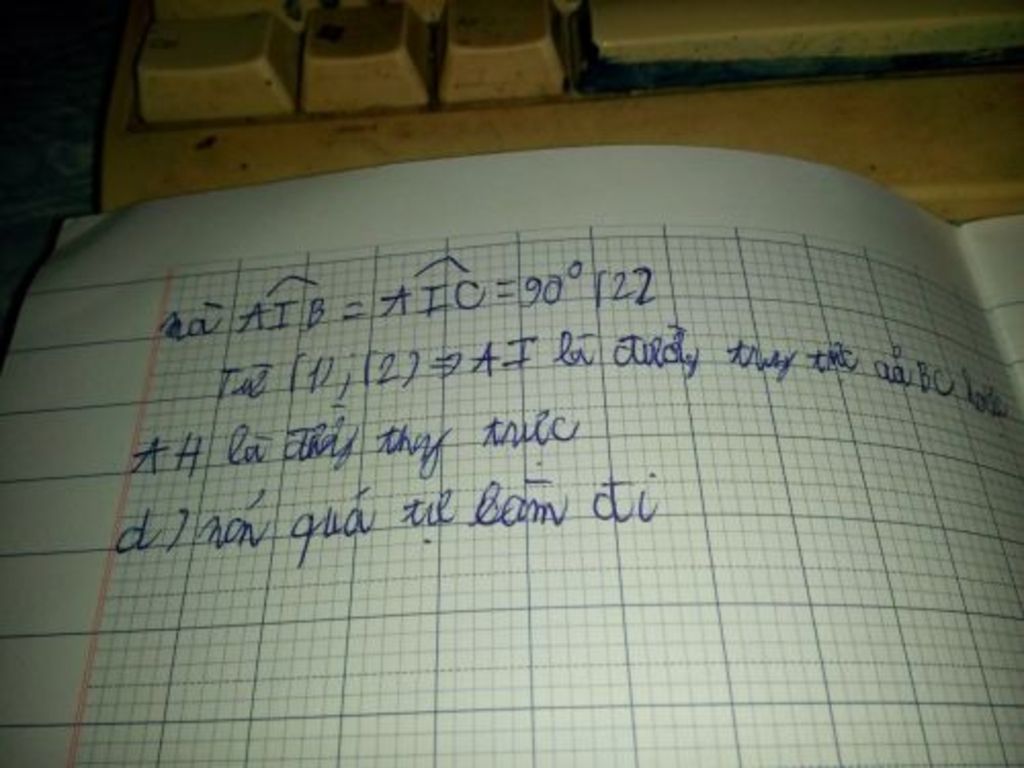 mà AIB = AIC = 90° (2)
Từ (1), (2) ⇒ AI là đường trung trực của BC hoặc
AH là đường trung trực
d) khó quá tự làm đi